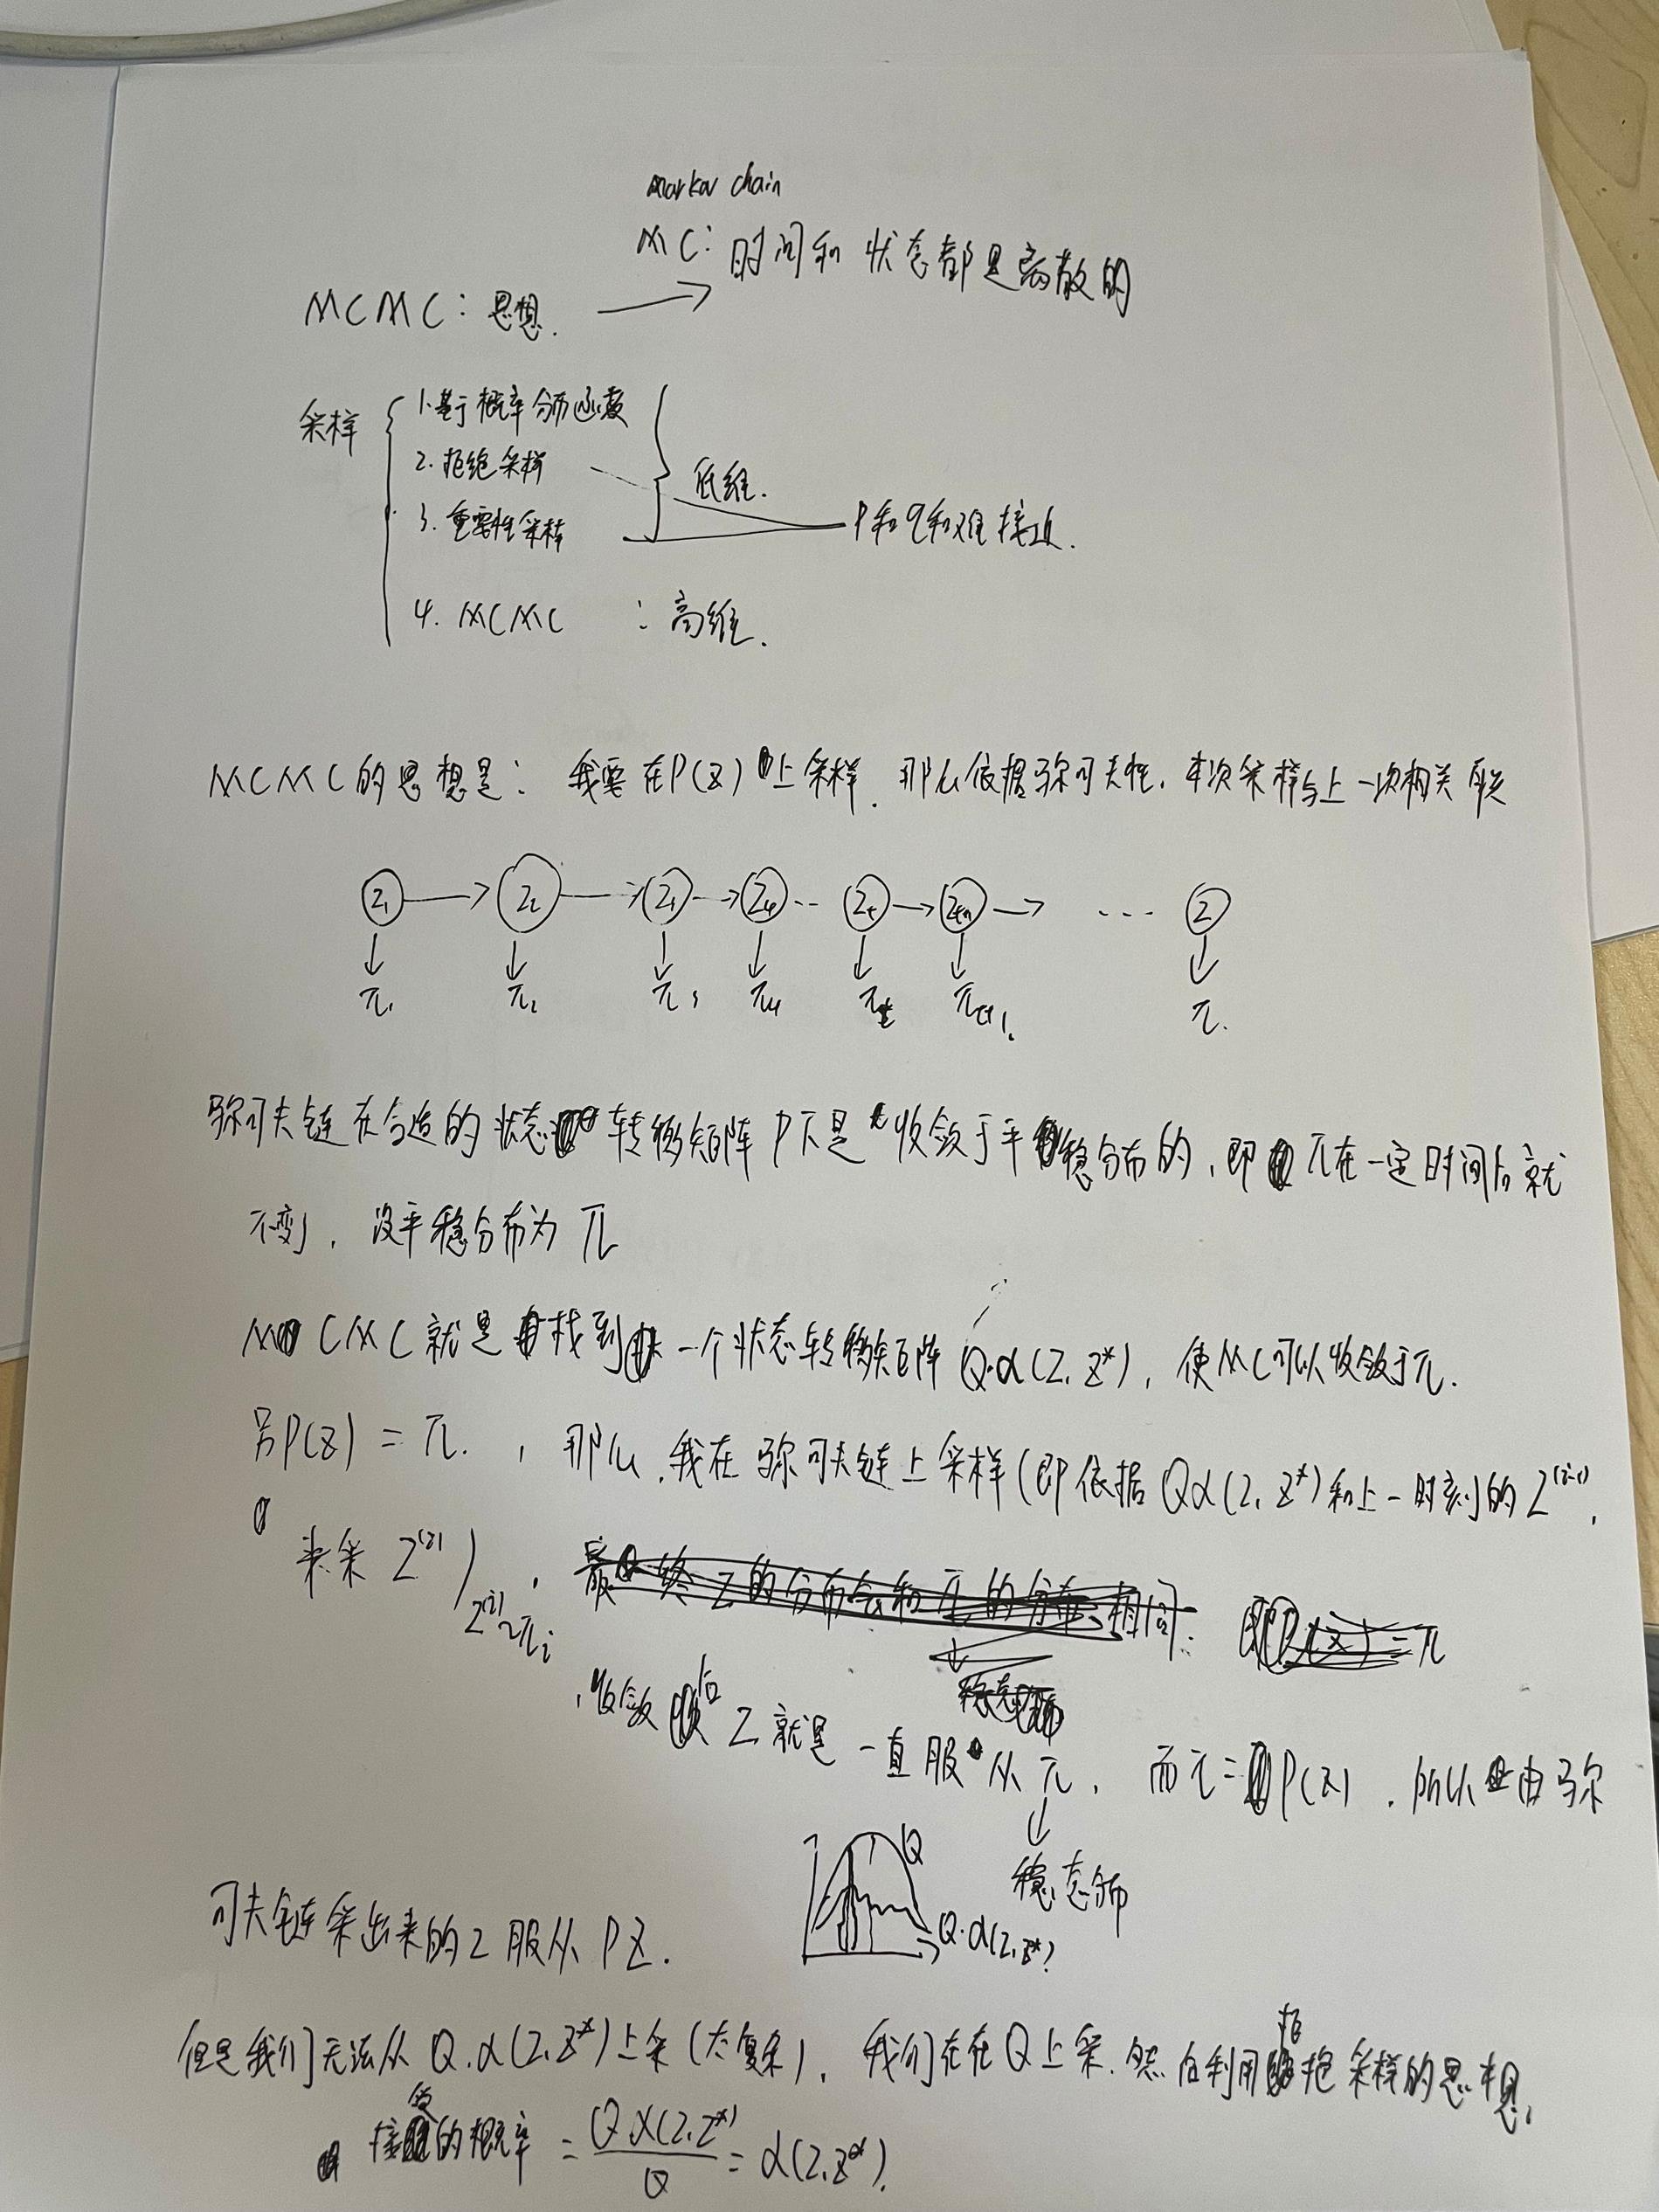 markov chain
MC: 时间和状态都是离散的
MCMC: 思想.
采样
1. 基于概率分布函数
2. 拒绝采样
3. 重要性采样
低维.
P和q很难接近.
4. MCMC : 高维.
MCMC的思想是: 我要在P(Z)上采样. 那么依据马尔可夫性, 本次采样与上一次相关联
Z₁ Z₂ Z₃ Z₄ .. Zₜ Zₜ₊₁ ... Z
π₁ π₂ π₃ π₄ πₜ πₜ₊₁. π.
马尔可夫链在合适的状态转移矩阵P下是收敛于平稳分布的, 即π在一定时间后就
不变了, 设平稳分布为π
MCMC就是找到一个状态转移矩阵 Q·α(Z, Z*), 使MC可以收敛于π.
另P(Z) = π. , 那么, 我在马尔可夫链上采样(即依据Qα(Z, Z*)和上一时刻的Z⁽ⁱ⁻¹⁾,
来采Z⁽ⁱ⁾)
Z⁽ⁱ⁾~πᵢ
, 收敛后Z就是一直服从π, 而π=P(Z), 所以由马尔
稳态分布
Q
Q·α(Z, Z*)
可夫链采出来的Z服从PZ.
但是我们无法从Q·α(Z, Z*)上采(太复杂), 我们在在Q上采. 然后利用拒绝采样的思想,
接受的概率 = Qα(Z, Z*) / Q = α(Z, Z*).